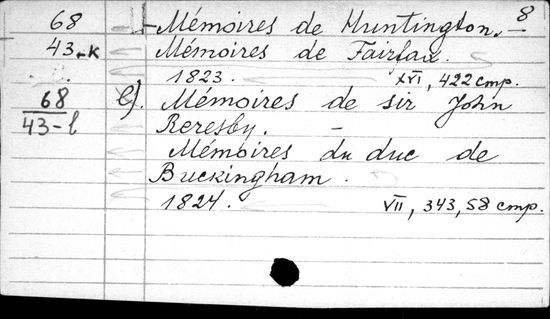 8
68 — Mémoires de Huntington. —
43-к Mémoires de Fairfax.
1823. XVI, 422 стр.
68 l). Mémoires de sir John
43-l Reresby. —
Mémoires du duc de
Buckingham.
1824. VII, 343, 58 стр.